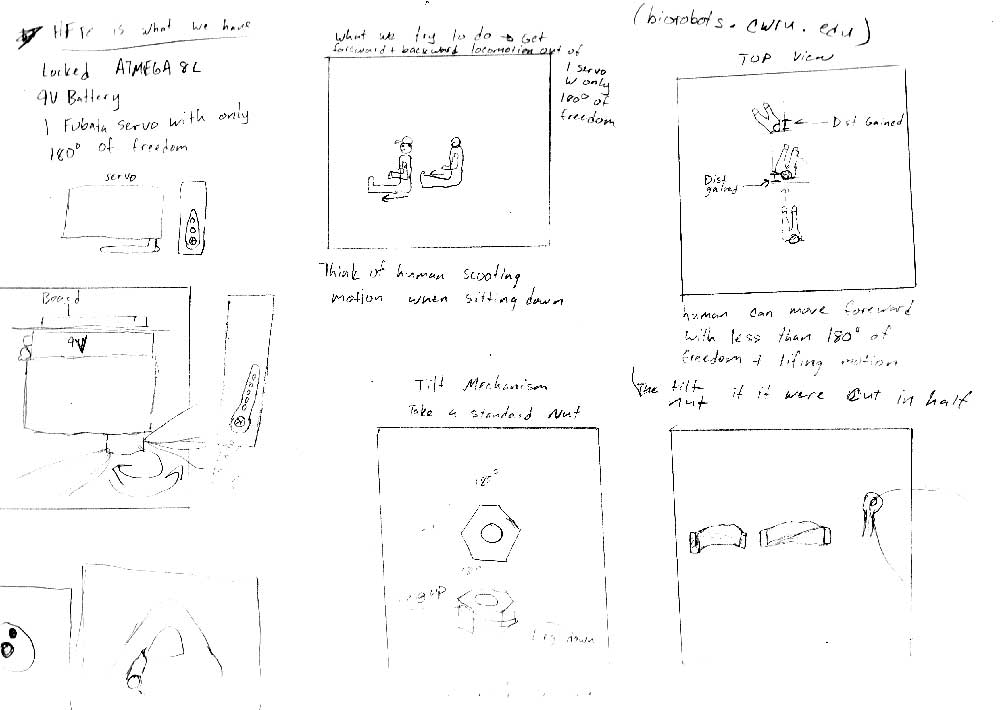 HERE is what we have
Locked ATMEGA 8L
9V Battery
1 Fubata servo with only
180° of freedom
servo
Board
9V
What we try to do → Get
foreward + backward locomotion out of
1 servo
w only
180° of
freedom
Think of human scooting
motion when sitting down
Tilt Mechanism
Take a standard Nut
180°
up
leg down
(biorobots.cwru.edu)
TOP View
Dst Gained
Dist
gained
human can move foreward
with less than 180° of
freedom + lifing motion
The tilt
nut if it were cut in half